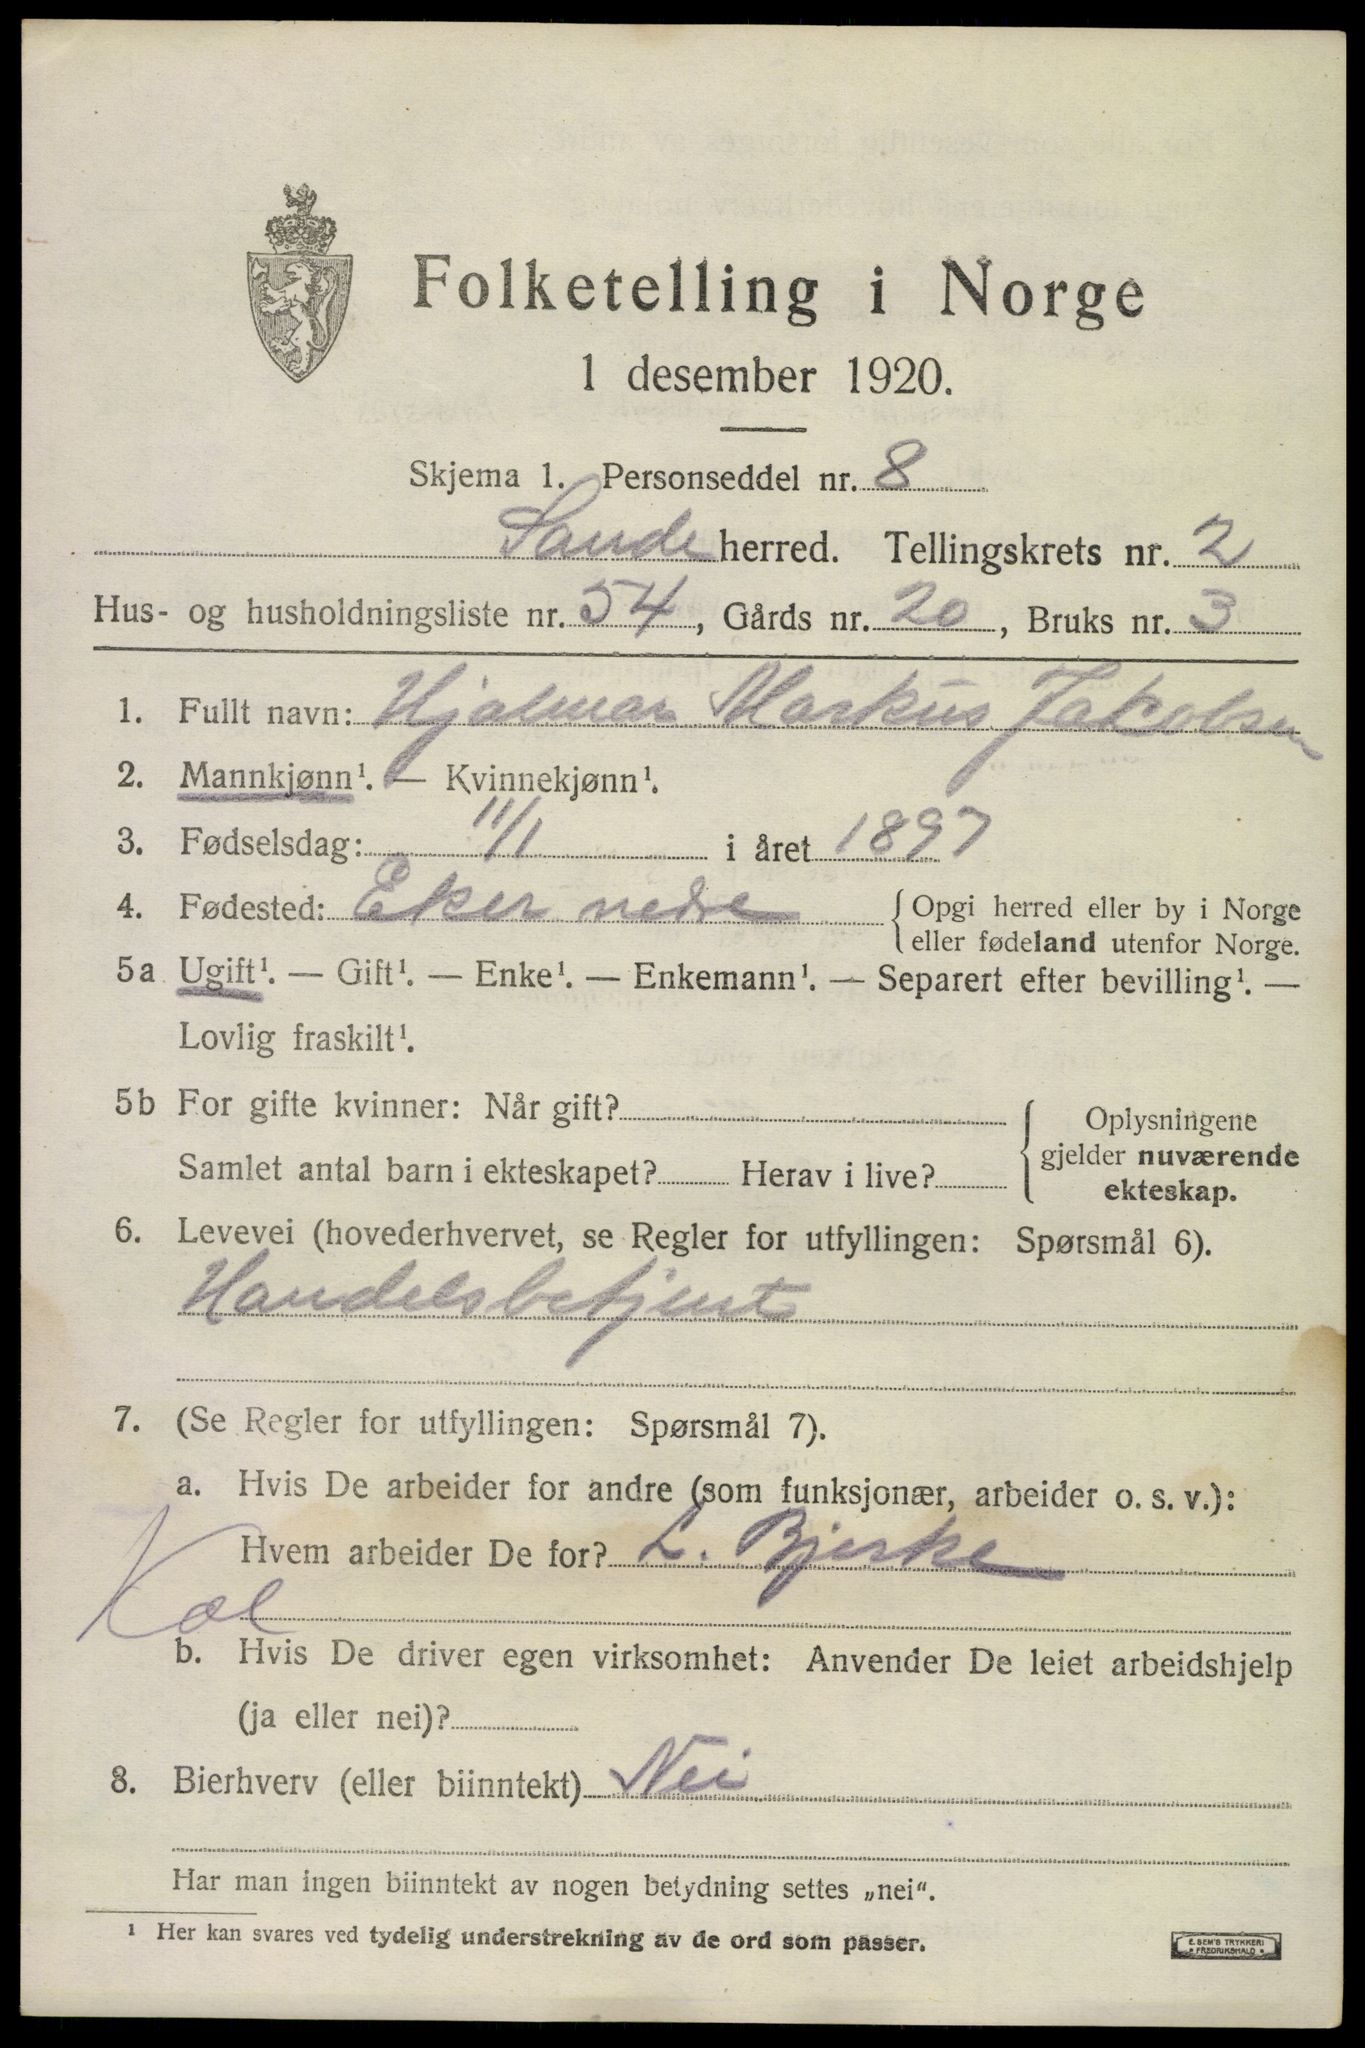 Folketelling i Norge
1 desember 1920.
Skjema 1. Personseddel nr. 8
Sande herred. Tellingskrets nr. 2
Hus- og husholdningsliste nr. 54, Gårds nr. 20, Bruks nr. 3
1. Fullt navn: Hjalmar Markus Jakobsen
2. Mannkjønn¹. — Kvinnekjønn¹.
3. Fødselsdag: 11/1 i året 1897
4. Fødested: Eker nedre { Opgi herred eller by i Norge
eller fødeland utenfor Norge.
5a Ugift¹. — Gift¹. — Enke¹. — Enkemann¹. — Separert efter bevilling¹. —
Lovlig fraskilt¹.
5b For gifte kvinner: Når gift?
Samlet antal barn i ekteskapet? Herav i live?
{ Oplysningene
gjelder nuværende
ekteskap.
6. Levevei (hovederhvervet, se Regler for utfyllingen: Spørsmål 6).
Handelsbetjent
7. (Se Regler for utfyllingen: Spørsmål 7).
a. Hvis De arbeider for andre (som funksjonær, arbeider o. s. v.):
Hvem arbeider De for? L. Bjerke
Kol
b. Hvis De driver egen virksomhet: Anvender De leiet arbeidshjelp
(ja eller nei)?
8. Bierhverv (eller biinntekt) Nei
Har man ingen biinntekt av nogen betydning settes „nei“.
¹ Her kan svares ved tydelig understrekning av de ord som passer.
E. SEM'S TRYKKERI
• FREDRIKSHALD •